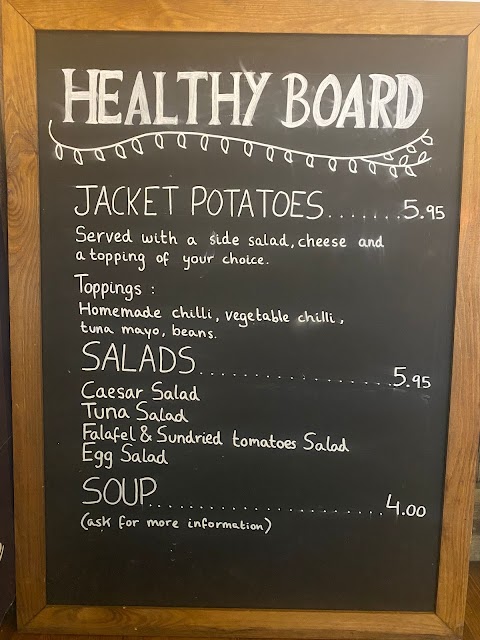 HEALTHY BOARD
JACKET POTATOES.......5.95
Served with a side salad, cheese and
a topping of your choice.
Toppings :
Homemade chilli, vegetable chilli,
tuna mayo, beans.
SALADS................5.95
Caesar Salad
Tuna Salad
Falafel & Sundried tomatoes Salad
Egg Salad
SOUP......................4.00
(ask for more information)